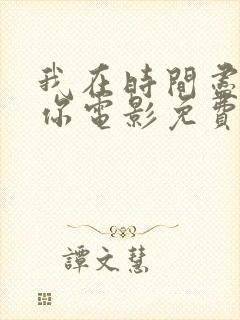 我在時間盡
你電影免費
譚文慧